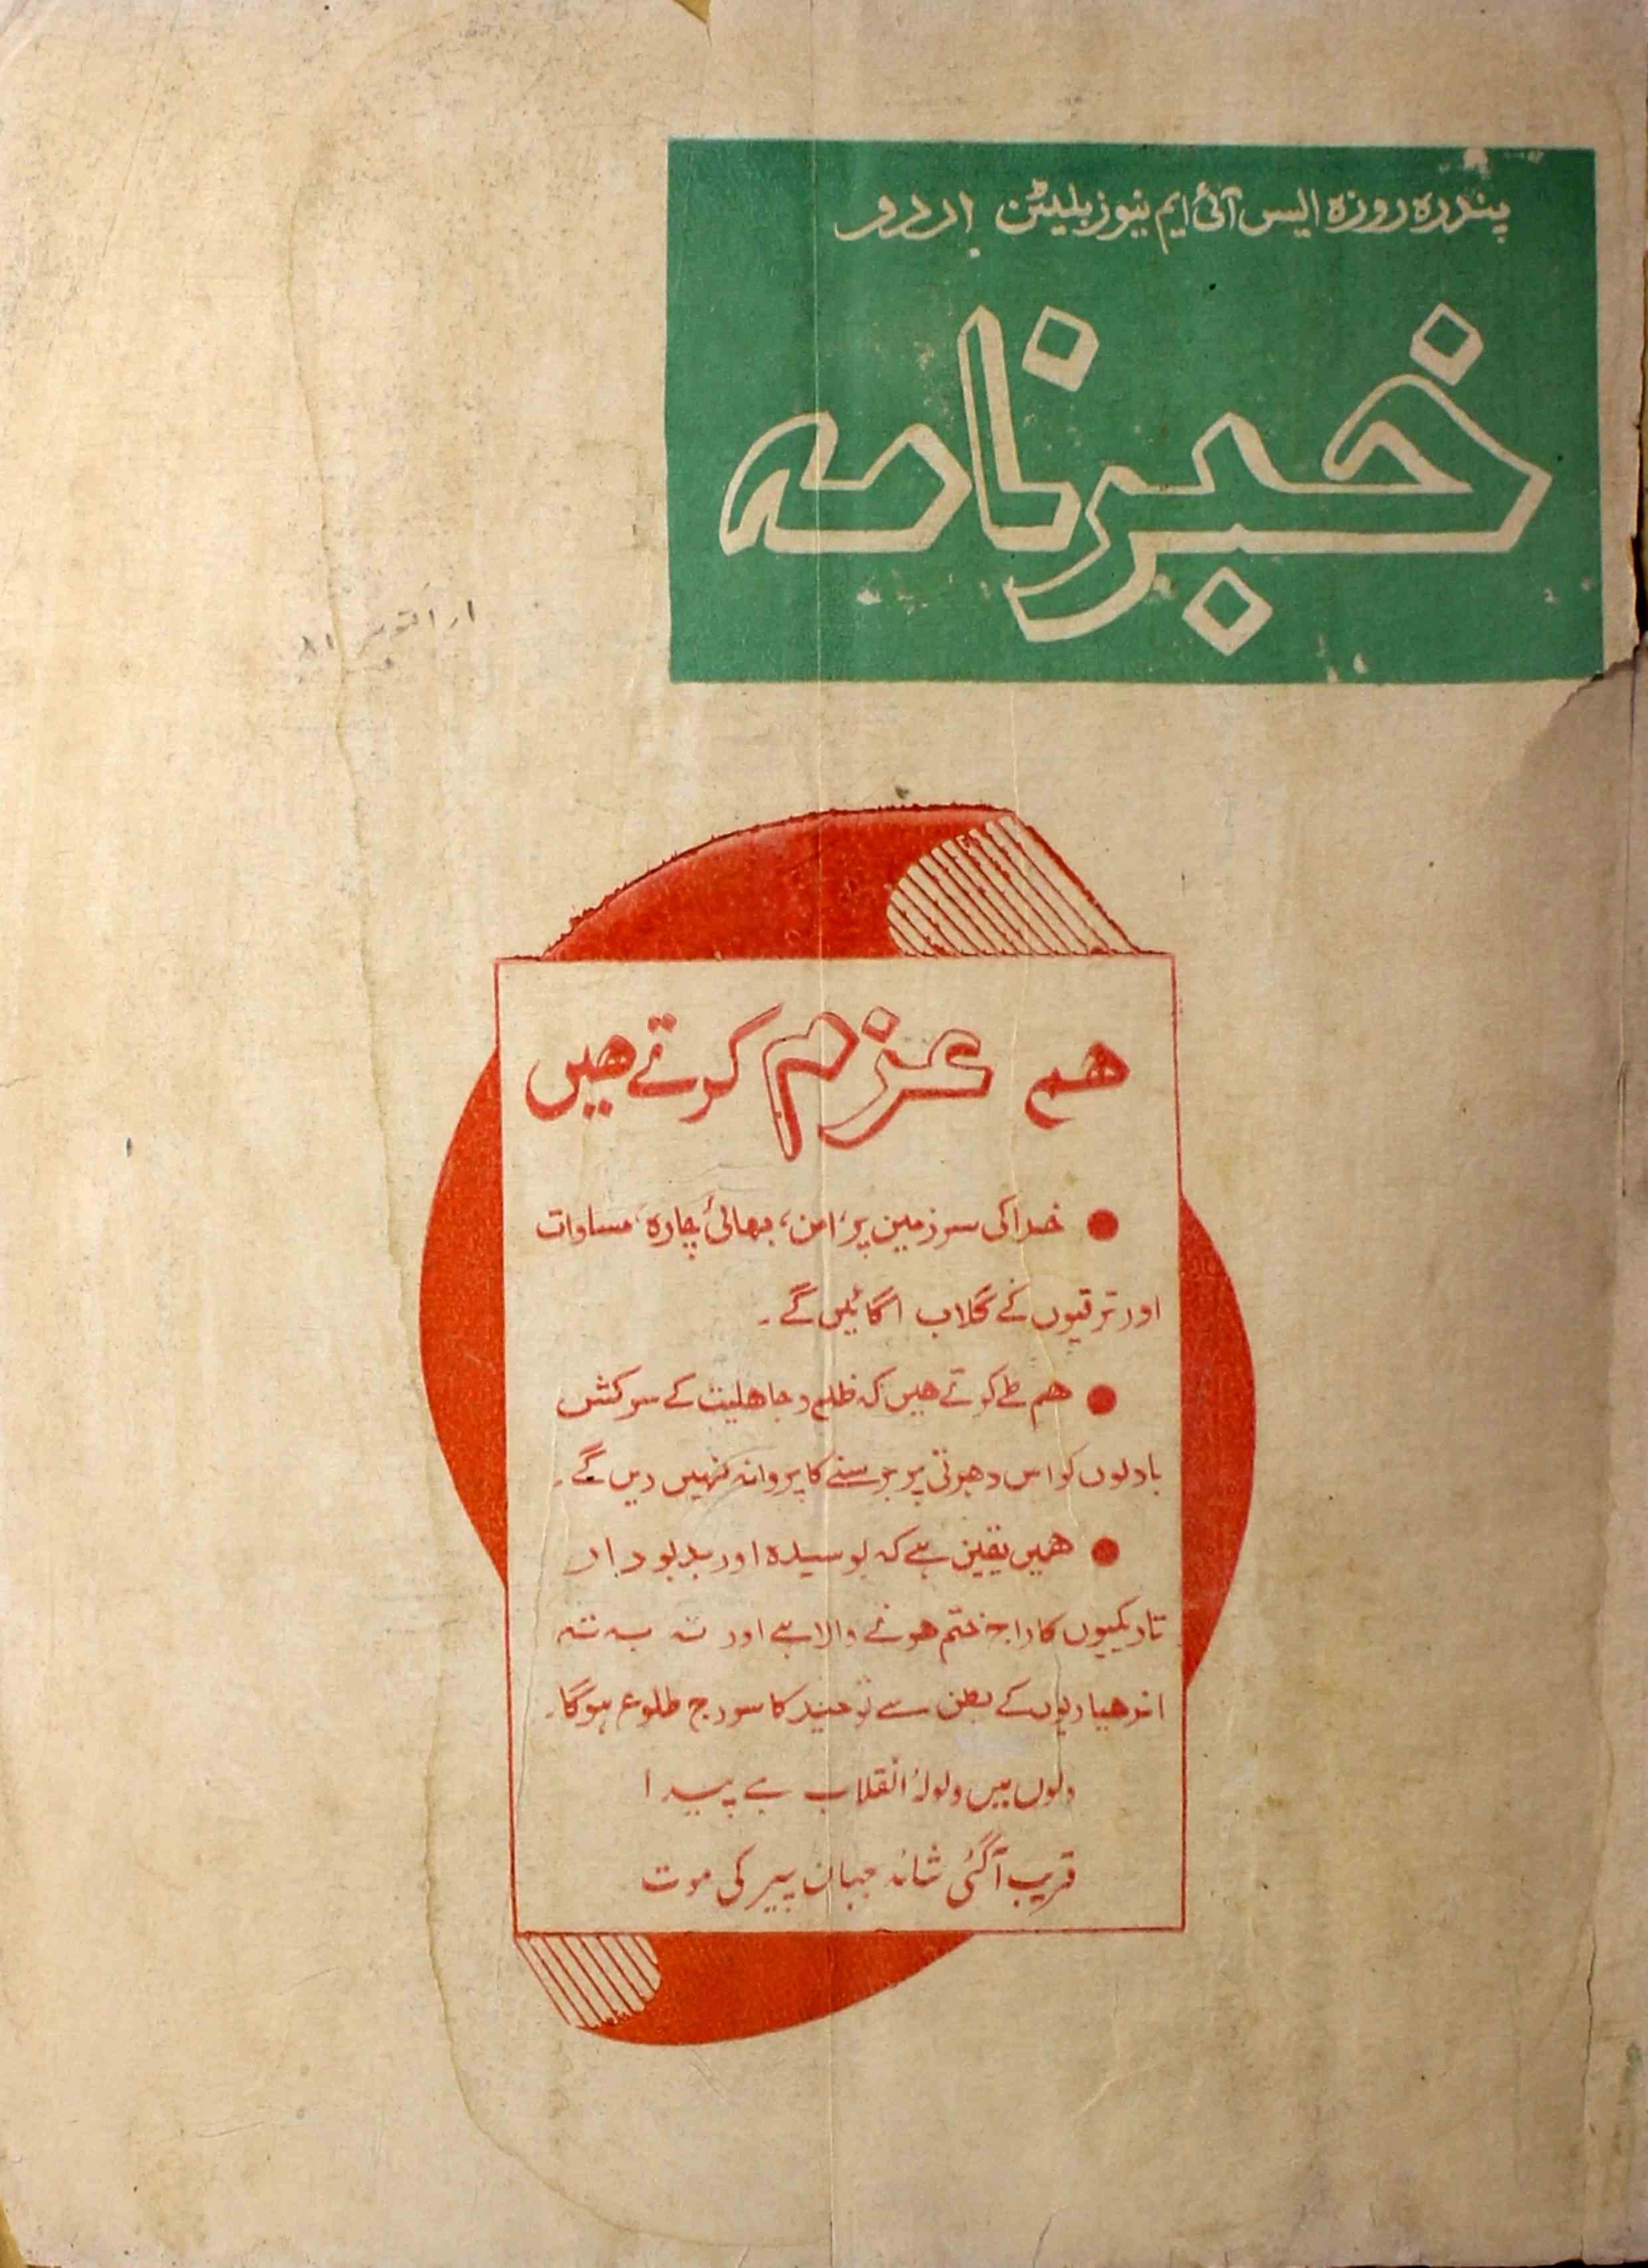 پندرہ روزہ ایس آئی ایم نیوز بلیٹن اردو
خبرنامہ
۱ر اکتوبر ۸۱
ہم عزم کرتے ہیں
● خدا کی سرزمین پر، امن، بھائی چارہ، مساوات
اور ترقیوں کے گلاب اگائیں گے۔
● ہم طے کرتے ہیں کہ ظلم و جاہلیت کے سرکش
بادلوں کو اس دھرتی پر برسنے کا پروانہ نہیں دیں گے۔
● ہمیں یقین ہے کہ بوسیدہ اور بدبودار
تاریکیوں کا راج ختم ہونے والا ہے اور تہ بہ تہ
اندھیاریوں کے بطن سے توحید کا سورج طلوع ہوگا۔
دلوں میں ولولۂ انقلاب ہے پیدا
قریب آگئی شاید جہان پیر کی موت